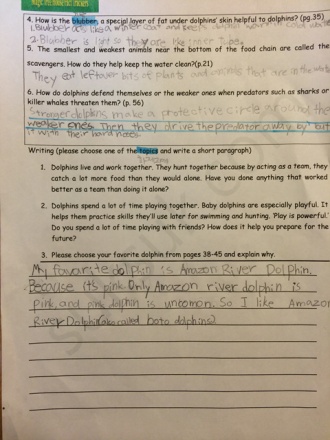 4. How is the blubber, a special layer of fat under dolphins' skin helpful to dolphins? (pg.35)
1. Blubber is like a winter coat and keeps dolphin warm in cold water
2. Blubber is light so they are like inner tubes.
5. The smallest and weakest animals near the bottom of the food chain are called the
scavengers. How do they help keep the water clean?(p.21)
They eat leftover bits of plants and animals that are in the water
6. How do dolphins defend themselves or the weaker ones when predators such as sharks or
killer whales threaten them? (p. 56)
Stronger dolphins make a protective circle around the
weaker ones. Then they drive the predator away by butt
it with their hard noses
Writing (please choose one of the topics and write a short paragraph)
1. Dolphins live and work together. They hunt together because by acting as a team, they
catch a lot more food than they would alone. Have you done anything that worked
better as a team than doing it alone?
2. Dolphins spend a lot of time playing together. Baby dolphins are especially playful. It
helps them practice skills they'll use later for swimming and hunting. 'Play is powerful.'
Do you spend a lot of time playing with friends? How does it help you prepare for the
future?
3. Please choose your favorite dolphin from pages 38-45 and explain why.
My favourite dolphin is Amazon River Dolphin.
Because it's pink. Only Amazon river dolphin is
pink, and pink dolphin is uncomon. So I like Amazon
River Dolphin(also called boto dolphins).